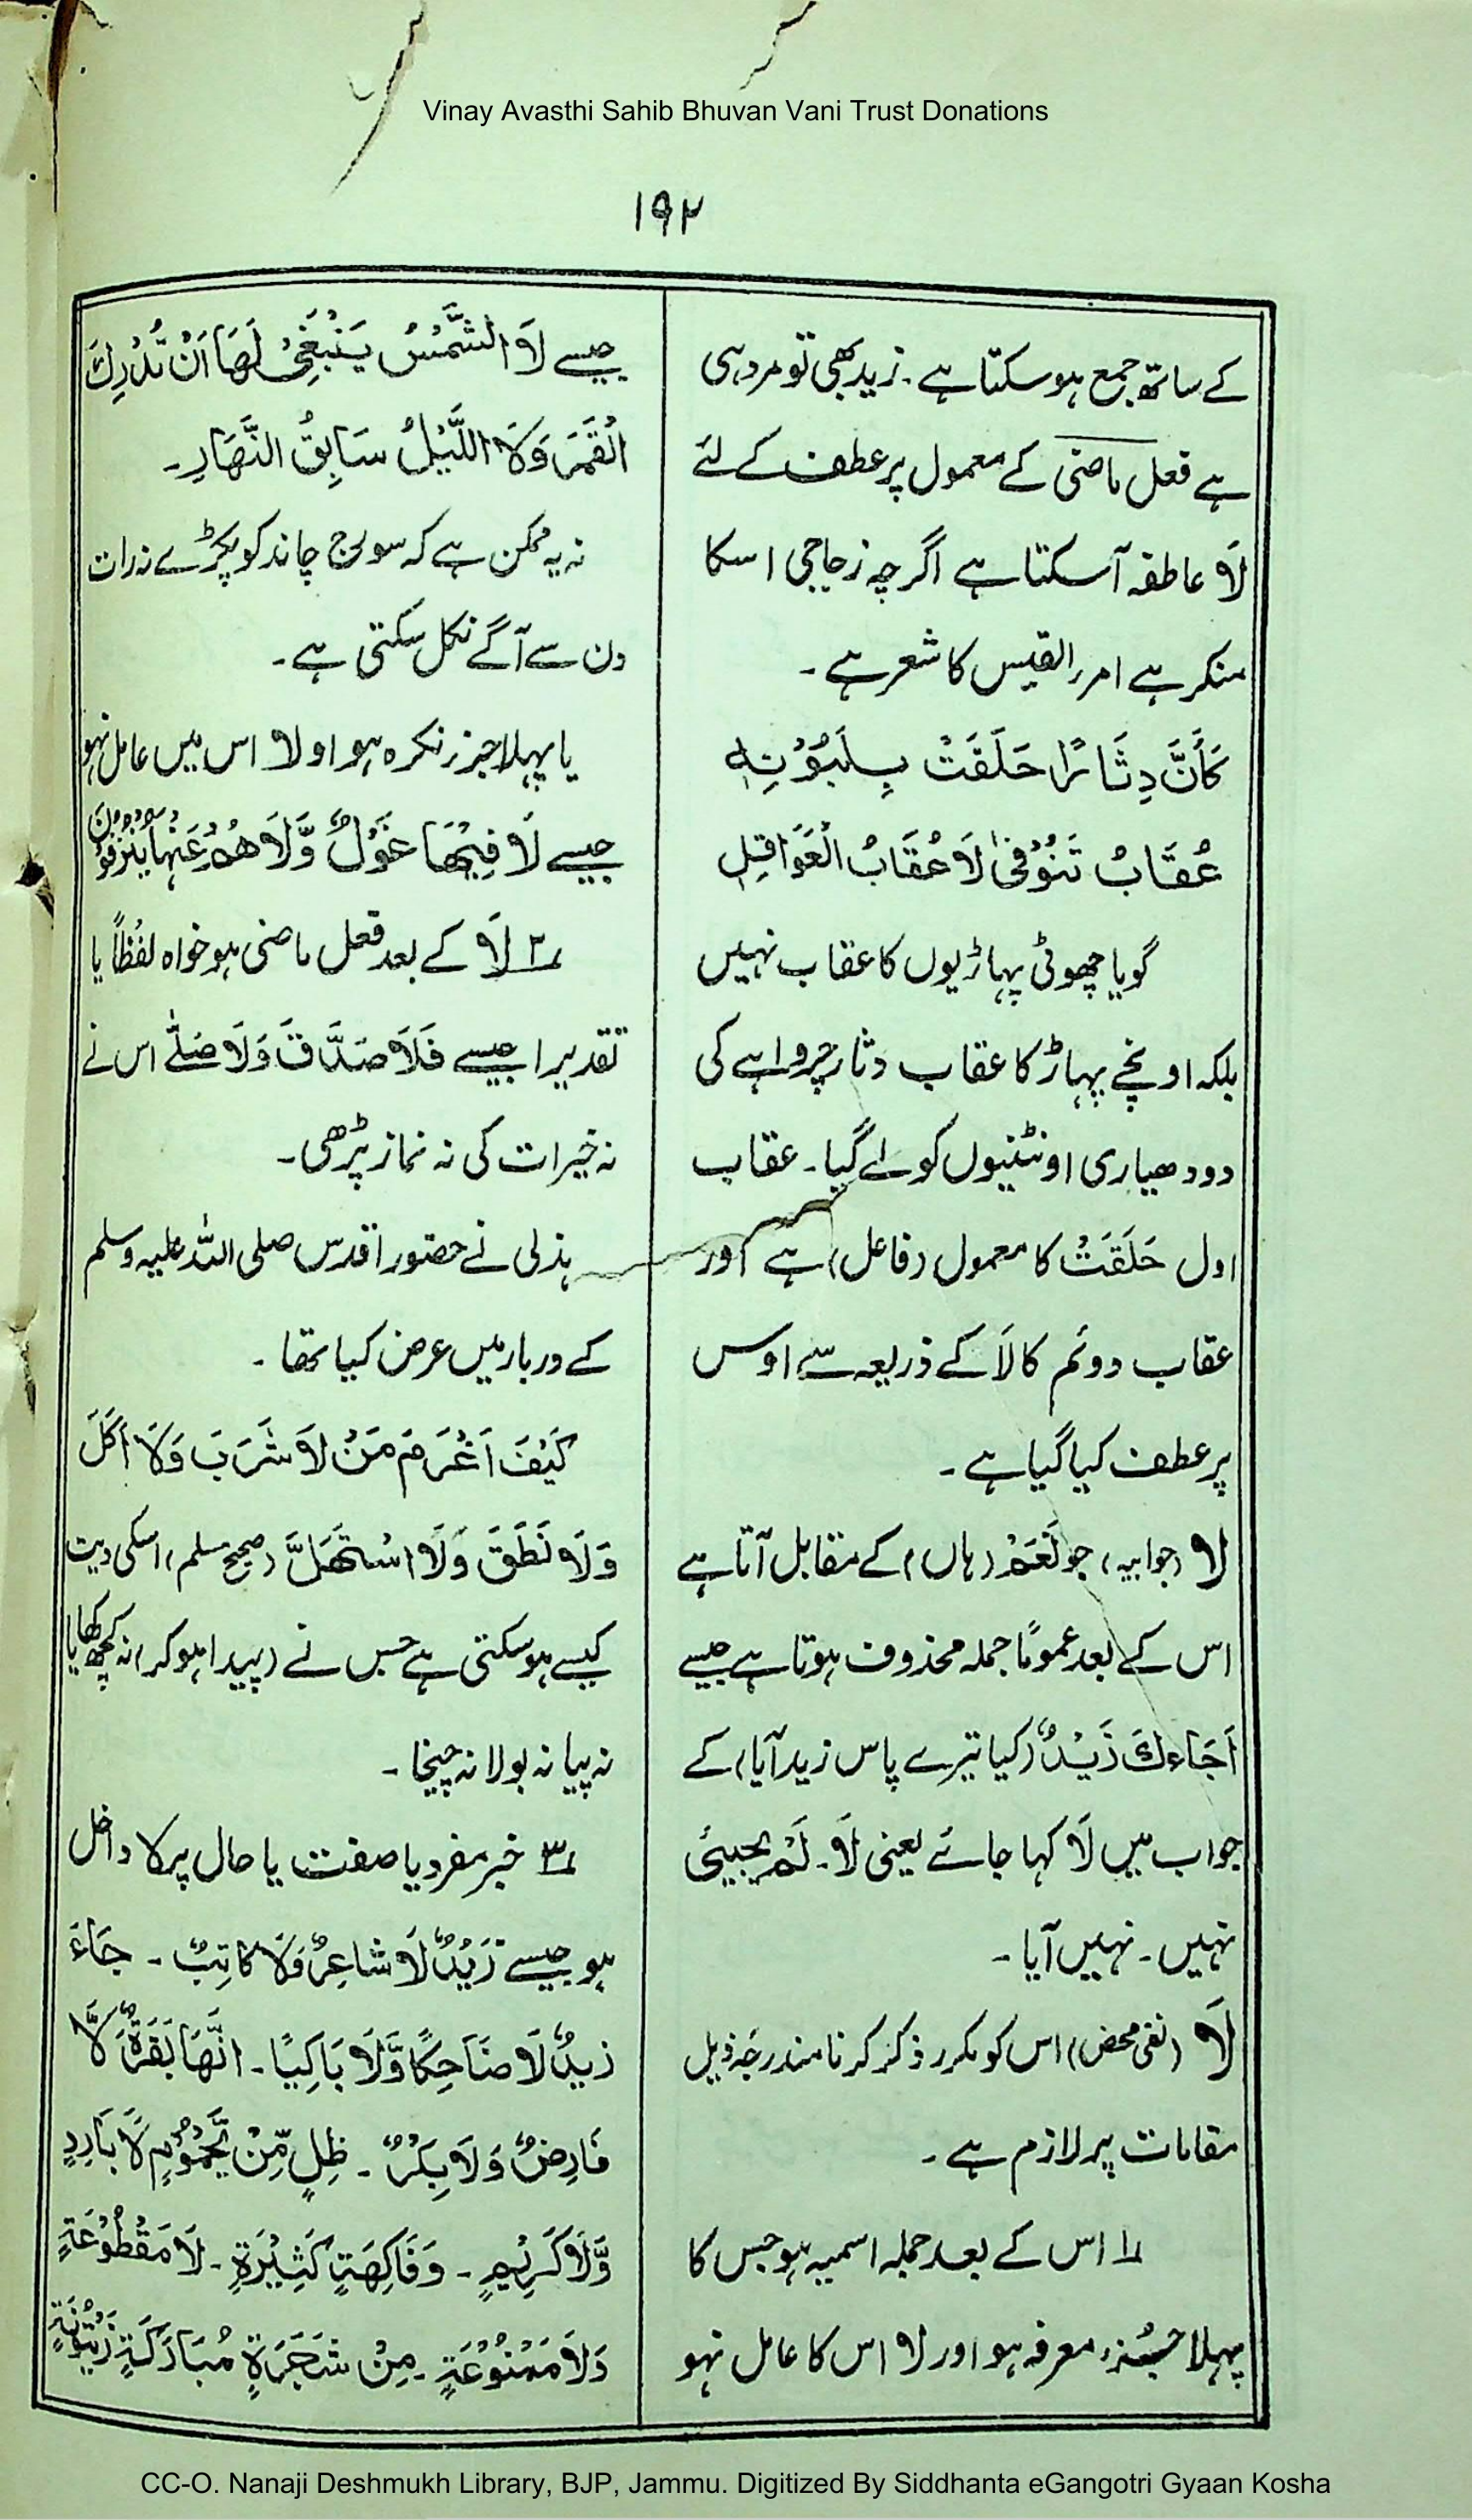 Vinay Avasthi Sahib Bhuvan Vani Trust Donations
۱۹۲
کے ساتھ جمع ہو سکتا ہے ۔ زید بھی تو مرد ہی
ہے فعل ماضی کے معمول پر عطف کے لئے
لَا عاطفہ آ سکتا ہے اگرچہ زجاجی اسکا
منکر ہے امرر القیس کا شعر ہے ۔
کَأَنَّ دِثَارًا حَلَقَتْ بِلَبُوْنِہٖ
عُقَابُ تَنُوْفٰی لَا عُقَابُ الْعَوَاقِلِ
گویا چھوٹی پہاڑیوں کا عقاب نہیں
بلکہ اونچے پہاڑ کا عقاب دثار چرواہے کی
دودھیاری اونٹنیوں کو لے گیا ۔ عقاب
اول حَلَقَتْ کا معمول (فاعل) ہے اور
عقاب دوئم کا لَا کے ذریعہ سے اوس
پر عطف کیا گیا ہے ۔
لا (جوابیہ) جو لَعَمْ (ہاں) کے مقابل آتا ہے
اس کے بعد عمومًا جملہ محذوف ہوتا ہے جیسے
اَجَاءَكَ زَیْدٌ (کیا تیرے پاس زید آیا) کے
جواب میں لَا کہا جائے یعنی لَا ۔ لَمْ یجیئ
نہیں ۔ نہیں آیا ۔
لَا (نفی محض) اس کو مکرر ذکر کرنا مندرجہ ذیل
مقامات پر لازم ہے ۔
۱؎ اس کے بعد جملہ اسمیہ ہو جس کا
پہلا جُز، معرفہ ہو اور لا اس کا عامل نہو
جیسے لَا الشَّمْسُ یَنْبَغِیْ لَھَا اَنْ تُدْرِكَ
الْقَمَرَ وَلَا اللَّیْلُ سَابِقُ النَّھَارِ ۔
نہ یہ ممکن ہے کہ سورج چاند کو پکڑے نہ رات
دن سے آگے نکل سکتی ہے ۔
یا پہلا جز نکرہ ہو اولا اس میں عامل نہو
جیسے لَا فِیْھَا غَوْلٌ وَّلَا ھُمْ عَنْہَا یُنْزَفُوْنَ
۲؎ لَا کے بعد فعل ماضی ہو خواہ لفظًا یا
تقدیرا جیسے فَلَا صَدَّقَ وَلَا صَلّٰے اس نے
نہ خیرات کی نہ نماز پڑھی ۔
ہذلی نے حضور اقدس صلی اللہ علیہ وسلم
کے دربار میں عرض کیا تھا ۔
کَیْفَ اَغْرَمَ مَنْ لَا شَرَبَ وَلَا اَکَلَ
وَلَا نَطَقَ وَلَا اسْتَھَلَّ (صحیح مسلم) اسکی دیت
کیسے ہو سکتی ہے جس نے (پیدا ہو کر) نہ کچھ کھایا
نہ پیا نہ بولا نہ چیخا ۔
۳؎ خبر مفرد یا صفت یا حال پر لا داخل
ہو جیسے زَیْدٌ لَا شَاعِرٌ وَلَا کَاتِبٌ ۔ جَاءَ
زیدٌ لَا ضَاحِکًا وَّلَا بَاکِیًا ۔ اِنَّھَا بَقَرَةٌ لَّا
فَارِضٌ وَلَا بِکْرٌ ۔ ظِلٍ مِّنْ یَّحْمُوْمٍ لَا بَارِدٍ
وَّلَا کَرِیْمٍ ۔ وَفَاکِھَةٍ کَثِیْرَةٍ ۔ لَا مَقْطُوْعَةٍ
وَلَا مَمْنُوْعَةٍ ۔ مِنْ شَجَرَةٍ مُبَارَکَةٍ زَیْتُوْنَةٍ
CC-O. Nanaji Deshmukh Library, BJP, Jammu. Digitized By Siddhanta eGangotri Gyaan Kosha